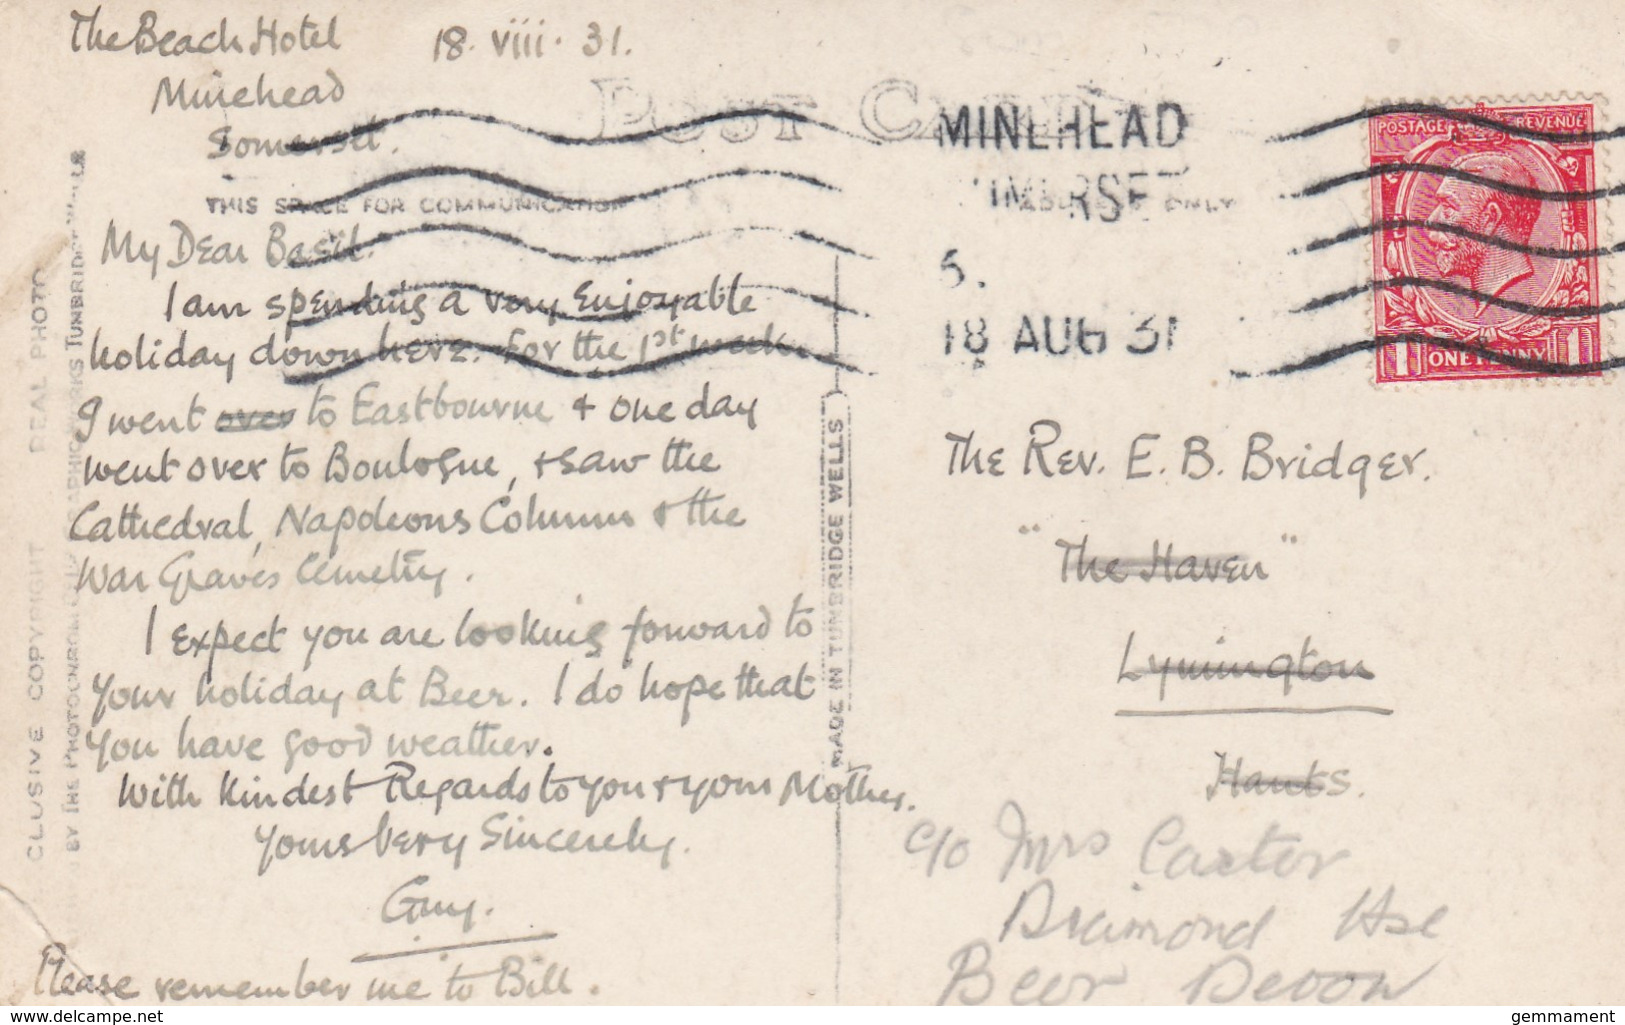 The Beach Hotel 18. viii. 31.
Minehead
Somerset.
POST CARD
THIS SPACE FOR COMMUNICATION
My Dear Basil.
I am spending a very Enjoyable
holiday down here. For the 1st week
I went over to Eastbourne & one day
went over to Boulogne, & saw the
Cathedral, Napoleons Column & the
War Graves Cemetry.
I expect you are looking forward to
your holiday at Beer. I do hope that
you have good weather.
With kindest Regards to you & your Mother.
Yours Very Sincerely.
Guy.
Please remember me to Bill.
CLUSIVE COPYRIGHT REAL PHOTO
MADE IN TUNBRIDGE WELLS
MINEHEAD
ONLY
18 AUG 31
POSTAGE REVENUE
1 ONE PENNY 1
The Rev. E. B. Bridger.
"The Haven"
Lymington
Hants.
c/o Mrs Caxter
Hse
Beer Devon
delcampe.net
gemmament